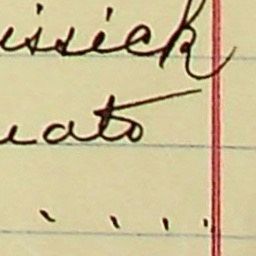 issick
uato
. . . .